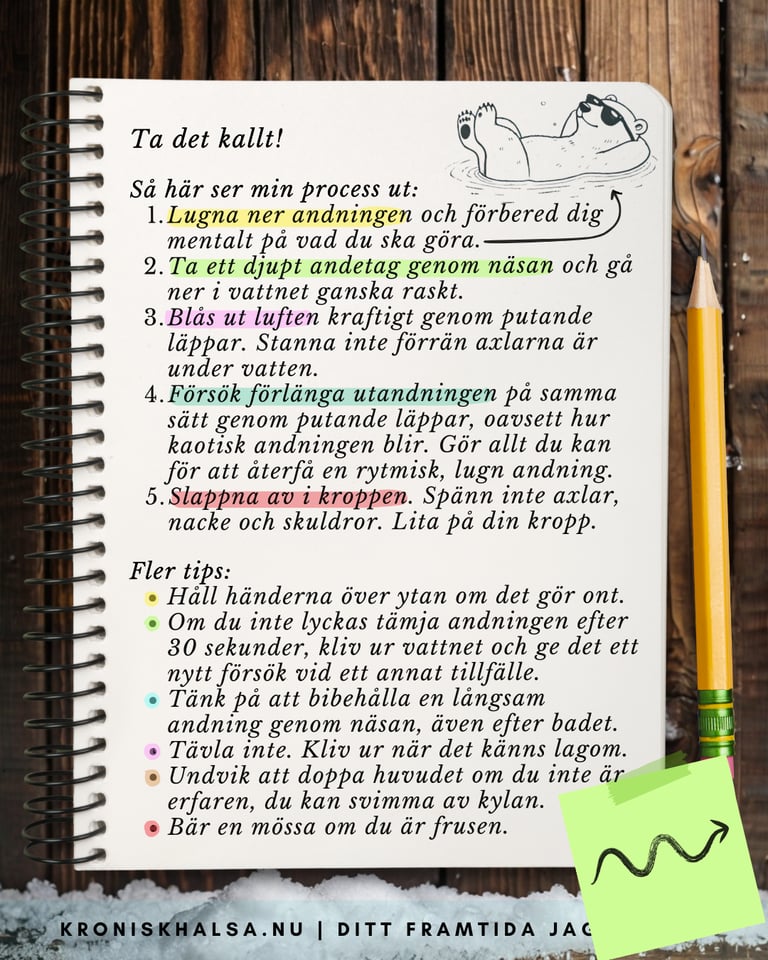 Ta det kallt!
Så här ser min process ut:
1. Lugna ner andningen och förbered dig
mentalt på vad du ska göra.
2. Ta ett djupt andetag genom näsan och gå
ner i vattnet ganska raskt.
3. Blås ut luften kraftigt genom putande
läppar. Stanna inte förrän axlarna är
under vatten.
4. Försök förlänga utandningen på samma
sätt genom putande läppar, oavsett hur
kaotisk andningen blir. Gör allt du kan
för att återfå en rytmisk, lugn andning.
5. Slappna av i kroppen. Spänn inte axlar,
nacke och skuldror. Lita på din kropp.
Fler tips:
Håll händerna över ytan om det gör ont.
Om du inte lyckas tämja andningen efter
30 sekunder, kliv ur vattnet och ge det ett
nytt försök vid ett annat tillfälle.
Tänk på att bibehålla en långsam
andning genom näsan, även efter badet.
Tävla inte. Kliv ur när det känns lagom.
Undvik att doppa huvudet om du inte är
erfaren, du kan svimma av kylan.
Bär en mössa om du är frusen.
KRONISKHALSA.NU | DITT FRAMTIDA JAG